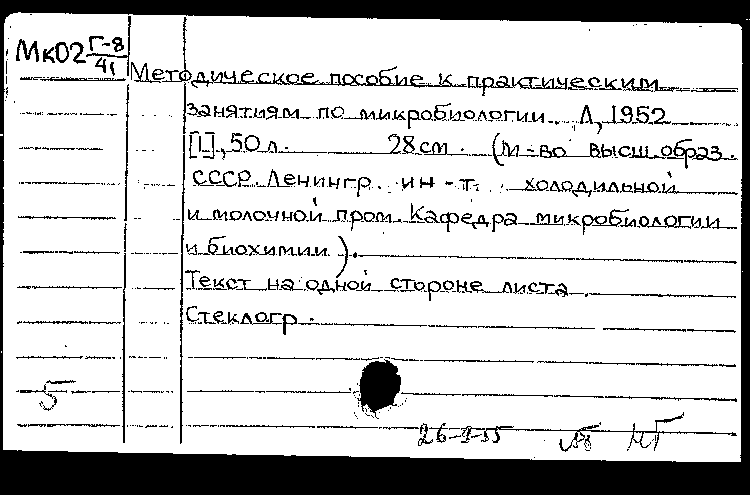 Мк02 Г-8/41
Методическое пособие к практическим
занятиям по микробиологии. Л, 1952
[1], 50 л. 28 см. (М-во высш. образ.
СССР. Ленингр. ин-т. холодильной
и молочной пром. Кафедра микробиологии
и биохимии).
Текст на одной стороне листа.
Стеклогр.
5